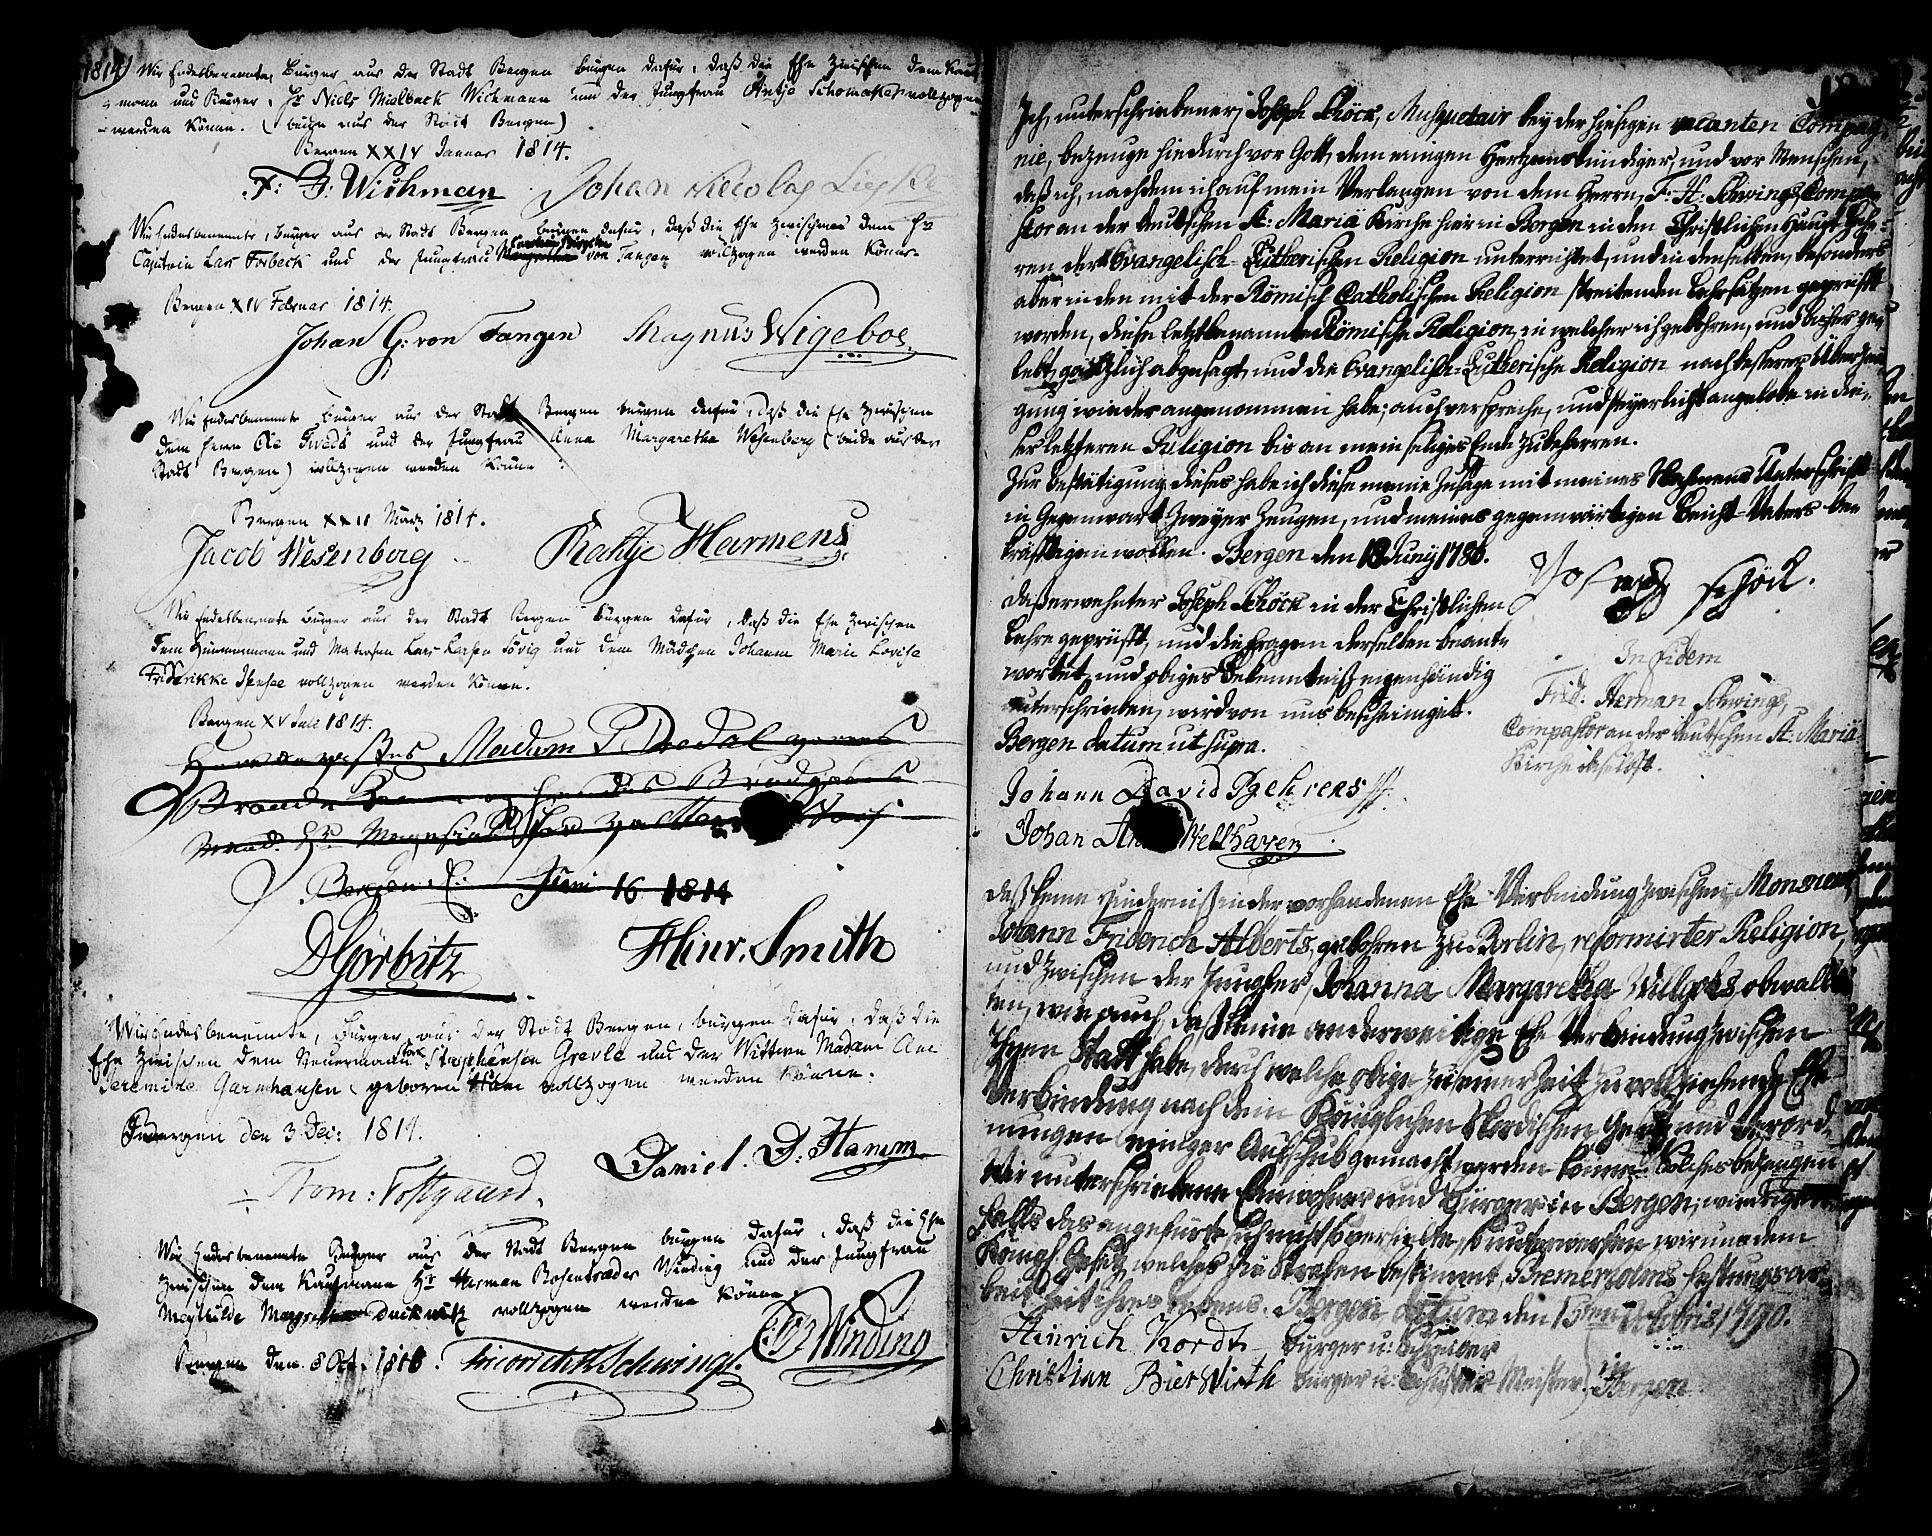 1814)
Wir Endesbenennte, Bürger aus der Stadt Bergen bürgen dafür, daß die Ehe zwischen dem Kauf-
mann und Bürger, Hr Niels Mielback Wichmann und der Jungfrau Antje Schomaker vollzogen
werden könne. (beide aus der Stadt Bergen)
Bergen XXIV Januar 1814.
F: Wichman Johan Nicolay
Wir Endesbenennte, Bürger aus der Stadt Bergen bürgen dafür, daß die Ehe zwischen dem Hr
Capitain Lars Forbeck und der Jungfrau von Tangen vollzogen werden könne.
Bergen XIV Februar 1814.
Johan G: von Tangen Magnus Wigeboe
Wir Endesbenennte Bürger aus der Stadt Bergen bürgen dafür, daß die Ehe zwischen
dem Herrn Ole Tvedt und der Jungfrau Anna Margaretha Wesenberg (beide aus der
Stadt Bergen) vollzogen werden könne.
Bergen XXII März 1814.
Jacob Wesenberg Raktje Harmens
Wir Endesbenennte Bürger aus der Stadt Bergen bürgen dafür, daß die Ehe zwischen
dem Zimmermann und Matrosen Lars Larsen Sövig und dem Mädchen Johanna Marie Lovise
Friderikke vollzogen werden könne.
Bergen XV Juli 1814.
Madam Dredal
Bergen. Juni 16 1814
D Görbitz Hinr. Smith
Wir Endesbenennte, Bürger aus der Stadt Bergen, bürgen dafür, daß die
Ehe zwischen dem Steuermann Stephensen Grevle und der Wittwe Madam Ane
Jeremine Garmhausen (geboren Ham vollzogen werden könne.
Bergen den 3 Dec: 1814.
Daniel. D: Hamm
Thom: Tostgaard.
Wir Endesbenennte Bürger aus der Stadt Bergen bürgen dafür, daß die Ehe
zwischen dem Kaufmann Hr Herman Rosentræder Winding und der Jungfrau
Megtilde Margretha Duckwitz vollzogen werden könne.
Bergen den 8 Oct. 1816. Friedrich H Schwings. Winding
Ich unterschriebener, Joseph Schöck, Musquetair bey der hiesigen vacanten Compag-
nie, bezeuge hiedurch vor Gott, dem einigen Hertzenskündiger, und vor Menschen,
daß ich, nachdem ich auf mein Verlangen von dem Herrn, F: H: Schwings Compa-
stor an der deutschen St: Maria Kirche hier in Bergen in den Christlichen Haupt Leh-
ren der Evangelisch-Lutherischen Religion unterrichtet, und in denselben, besonders
aber in den mit der Römisch Catholischen Religion streitenden Lehrsätzen geprüft
worden, diese letztbenannte Römische Religion, in welcher ich gebohren, und bisher ge-
lebt, gäntzlich abgesagt, und die Evangelisch-Lutherische Religion nach besserer Überzeu-
gung wieder angenommen habe; auch verspreche, und feyerlichst angelobe in die-
ser letzteren Religion bis an mein seliges Ende zu beharren.
Zur Bestätigung dieses habe ich diese meine Zusage mit meines Nahmens Unterschrift
in Gegenwart zweyer Zeugen, und meines gegenwärtigen Beicht-Vaters be-
kräftigen wollen. Bergen den 18 Juny 1786.
Joseph schöck.
Daß erwehnter Joseph Schöck in der Christlichen
Lehre geprüfft, und die Fragen derselben beant-
wortet, und obiges Bekenntniß eigenhändig
unterschrieben, wird von uns bescheiniget.
Bergen datum ut supra.
In fidem
Frid: Herman Schwings,
Compastor an der deutschen St: Maria
Kirche daselbst.
Johann David Behrens
Johan Wellhaven
Daß keine Hinderniß in der vorhandenen Ehe-Verbindung zwischen Monsieur
Johann Friderich Alberts, gebohren zu Berlin, reformirter Religion,
und zwischen der Jungfer, Johanna Margaretha obwal-
ten, wie auch, daß keine anderweitige Ehe Verbindung zwischen
Ihnen Statt habe, durch welche obige zu einer Zeit zu vollziehende Ehe-
Verbindung nach dem Königlichen Nordischen Gesetz und Verord-
nungen einiger Aufschub gemacht werden könne: Solches bezeugen
Wir unterschriebene Einwohner und Bürger in Bergen; widrigen-
falls das angeführte sich nicht so verhielte, so unterwerfen wir uns dem
Königl. Gesetz, welches die Strafen bestimmt, Bremerholms Festungsar-
beit Zeit ihres Lebens. Bergen datum den 15ten Octobris 1790.
Heinrich Kordt, Bürger u:
Christian BierWirth Bürger u: Schuster Meister in Bergen